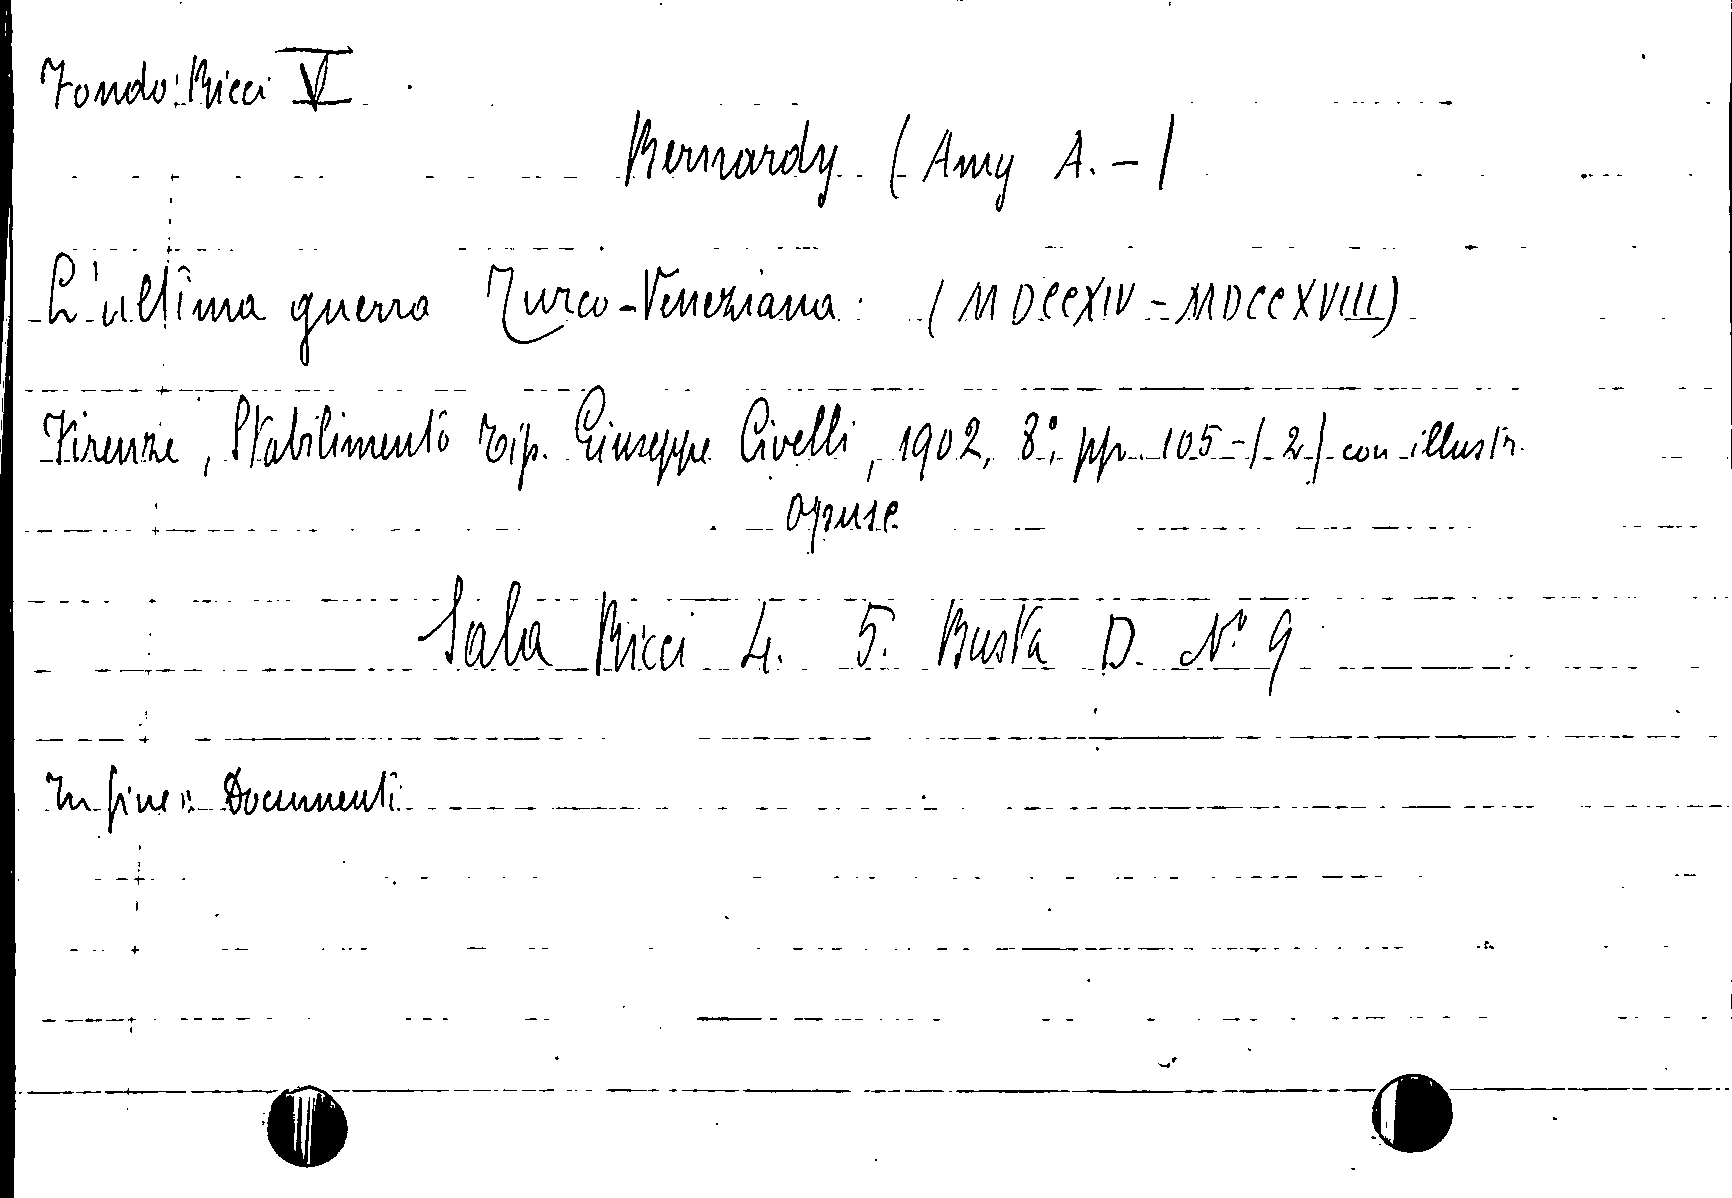 Fondo Ricci V
Bernardy (Amy A. -)
L'ultima guerra Turco-Veneziana (MDCCXIV - MDCCXVIII)
Firenze, Stabilimento tip. Giuseppe Civelli, 1902, 8°, pp. 105-(2) con illustr.
opusc.
Sala Ricci 4. 5. Busta D. N° 9
In fine: Documenti